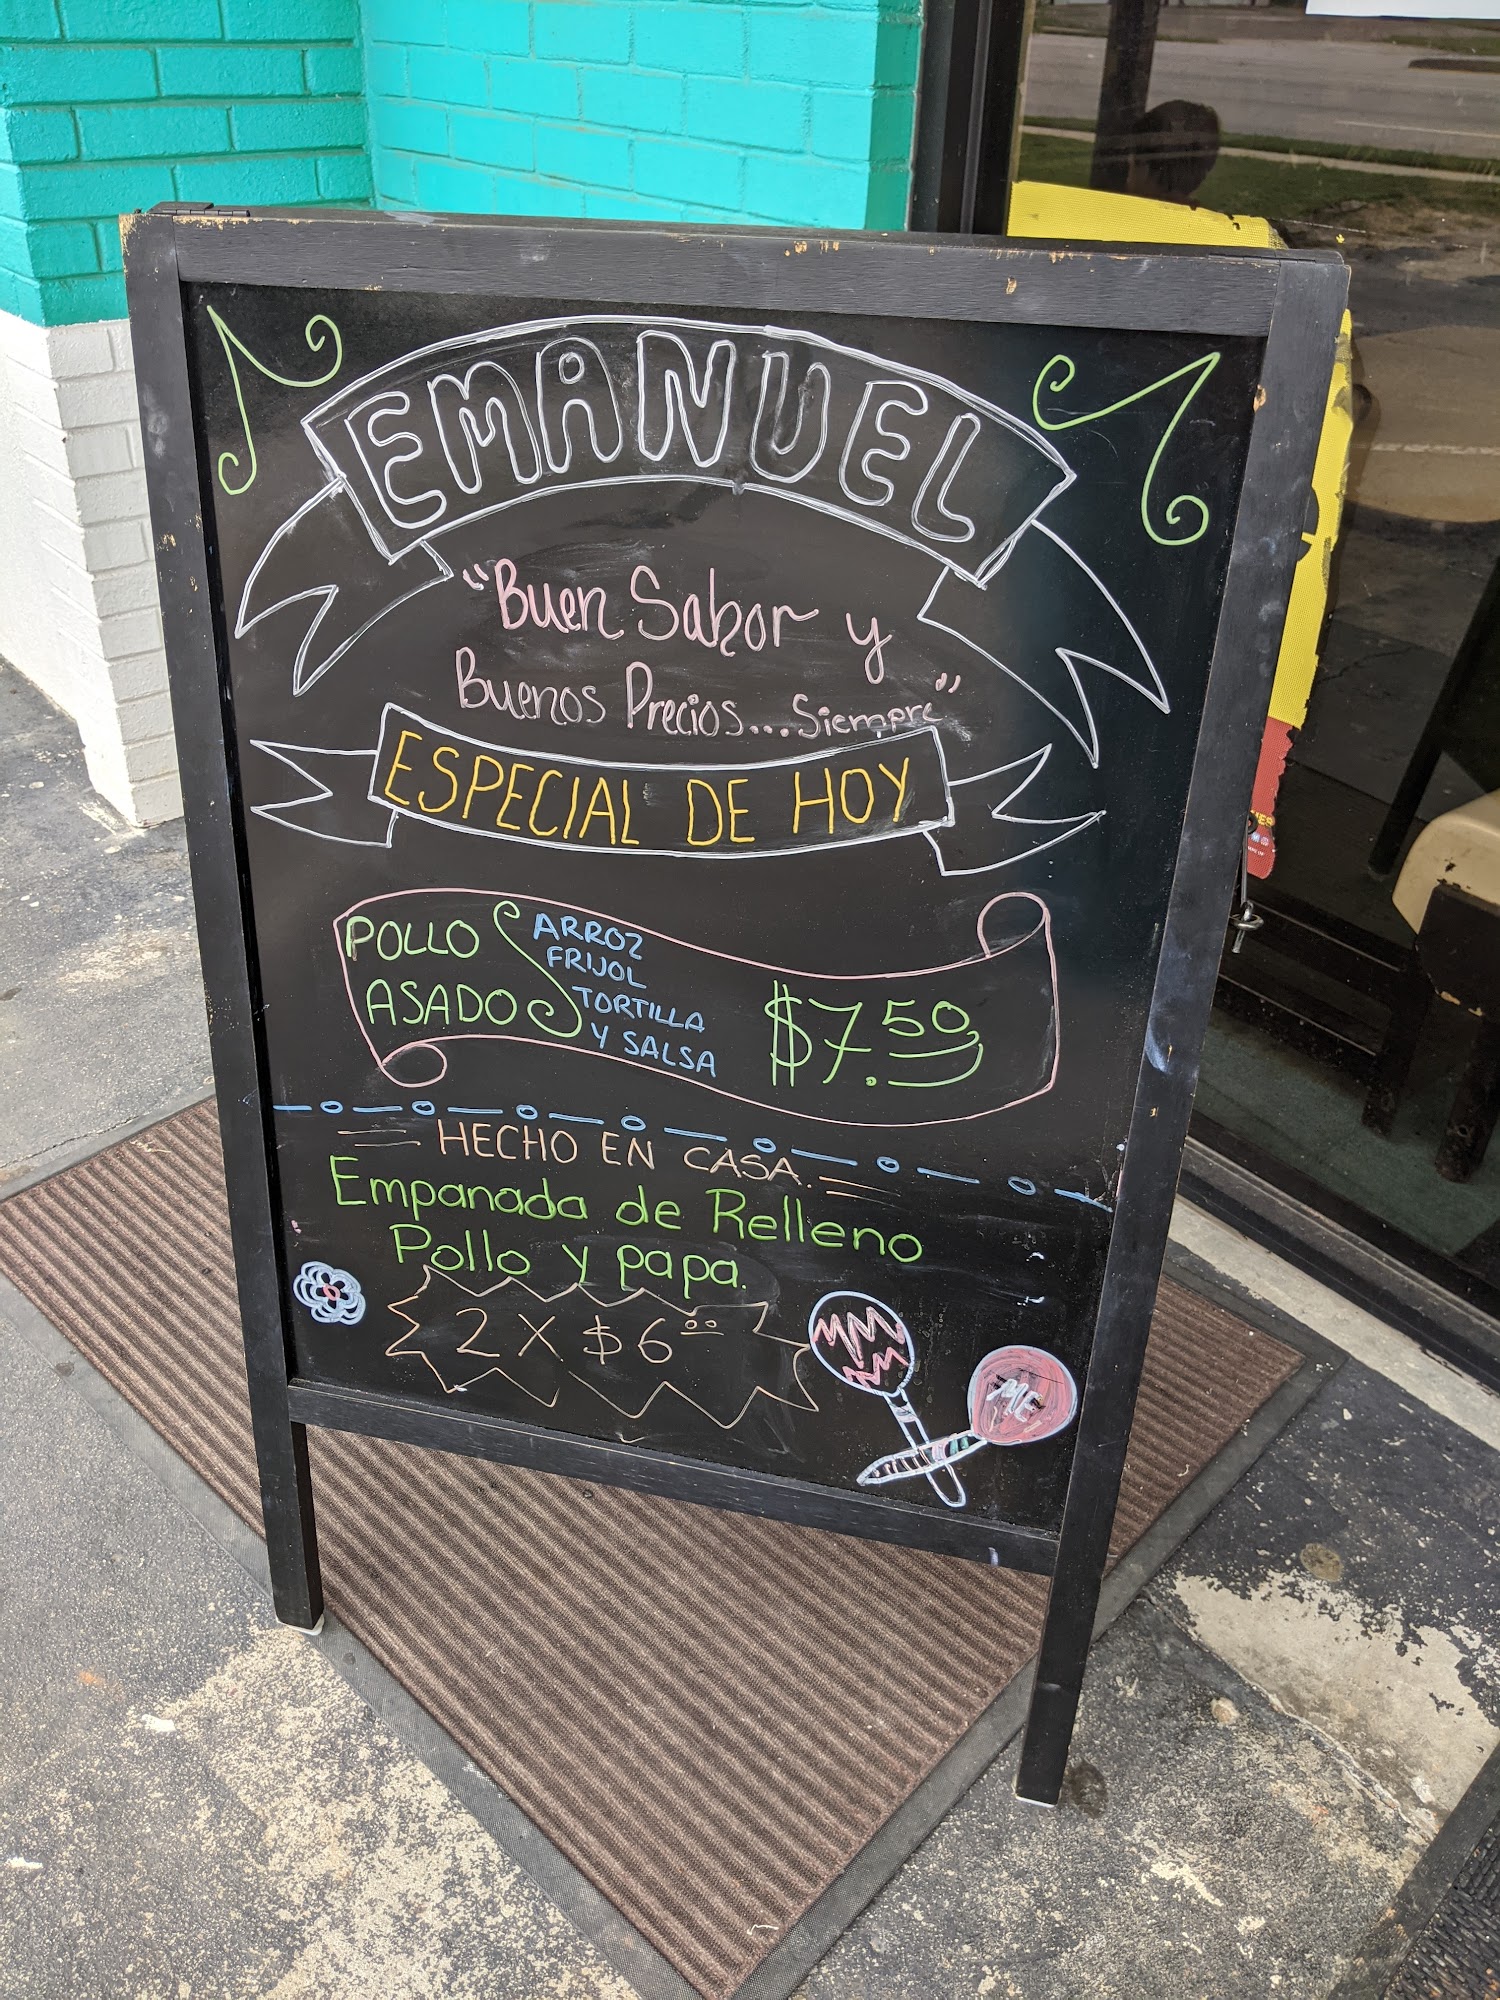 EMANUEL
"Buen Sabor y
Buenos Precios...Siempre"
ESPECIAL DE HOY
POLLO
ASADO
ARROZ
FRIJOL
TORTILLA
Y SALSA
$7.50
HECHO EN CASA.
Empanada de Relleno
Pollo y papa.
2 X $6.00